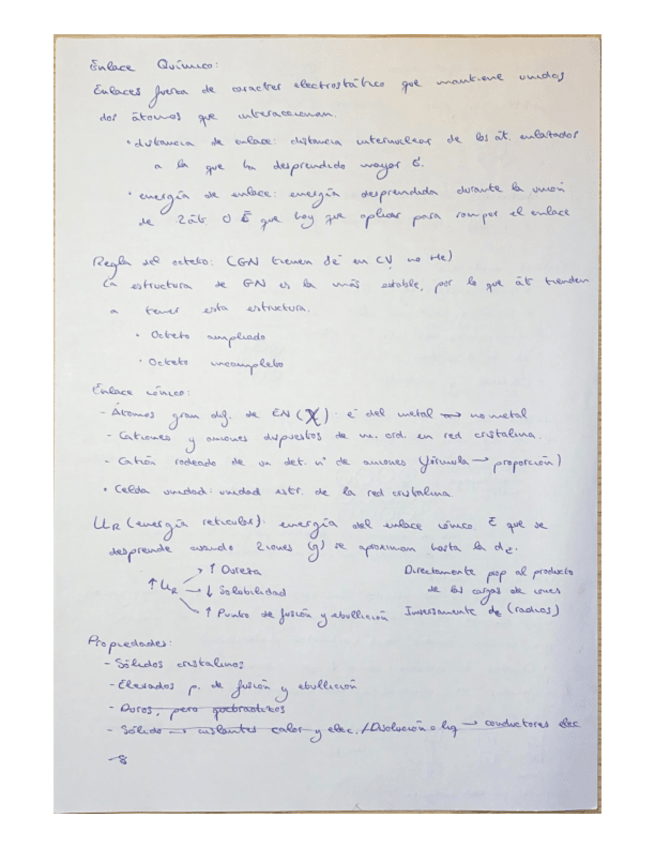 Enlace Químico:
Enlaces fuerza de caracter electrostático que mantiene unidos
dos átomos que interaccionan.
• distancia de enlace: distancia internuclear de los át. enlazados
a la que ha desprendido mayor E.
• energía de enlace: energía desprendida durante la unión
de 2 át. O E que hay que aplicar para romper el enlace
Regla del octeto: (GN tienen 8e⁻ en CV, no He)
La estructura de GN es la más estable, por lo que át tienden
a tener esta estructura.
• Octeto ampliado
• Octeto incompleto
Enlace iónico:
- Átomos gran dif. de EN (X) e⁻ del metal → no metal
- Cationes y aniones dispuestos de m. ord. en red cristalina.
- Catión rodeado de un det. nº de aniones (fórmula → proporción)
• Celda unidad: unidad estr. de la red cristalina
UR (energía reticular): energía del enlace iónico. E que se
desprende cuando 2 iones (g) se aproximan hasta la dE.
↑ UR → ↑ Dureza
→ ↓ Solubilidad
→ ↑ Punto de fusión y ebullición
Directamente prop al producto
de las cargas de iones
Inversamente dE (radios)
Propiedades:
- Sólidos cristalinos
- Elevados p. de fusión y ebullición
- Duros, pero quebradizos
- Sólido → aislantes calor y elec. / Disolución o líq → conductores elec